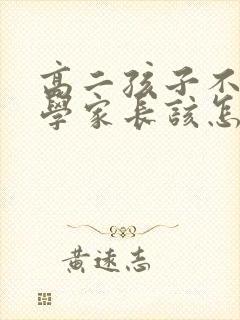 高二孩子不
學家長該怎
黃遠志